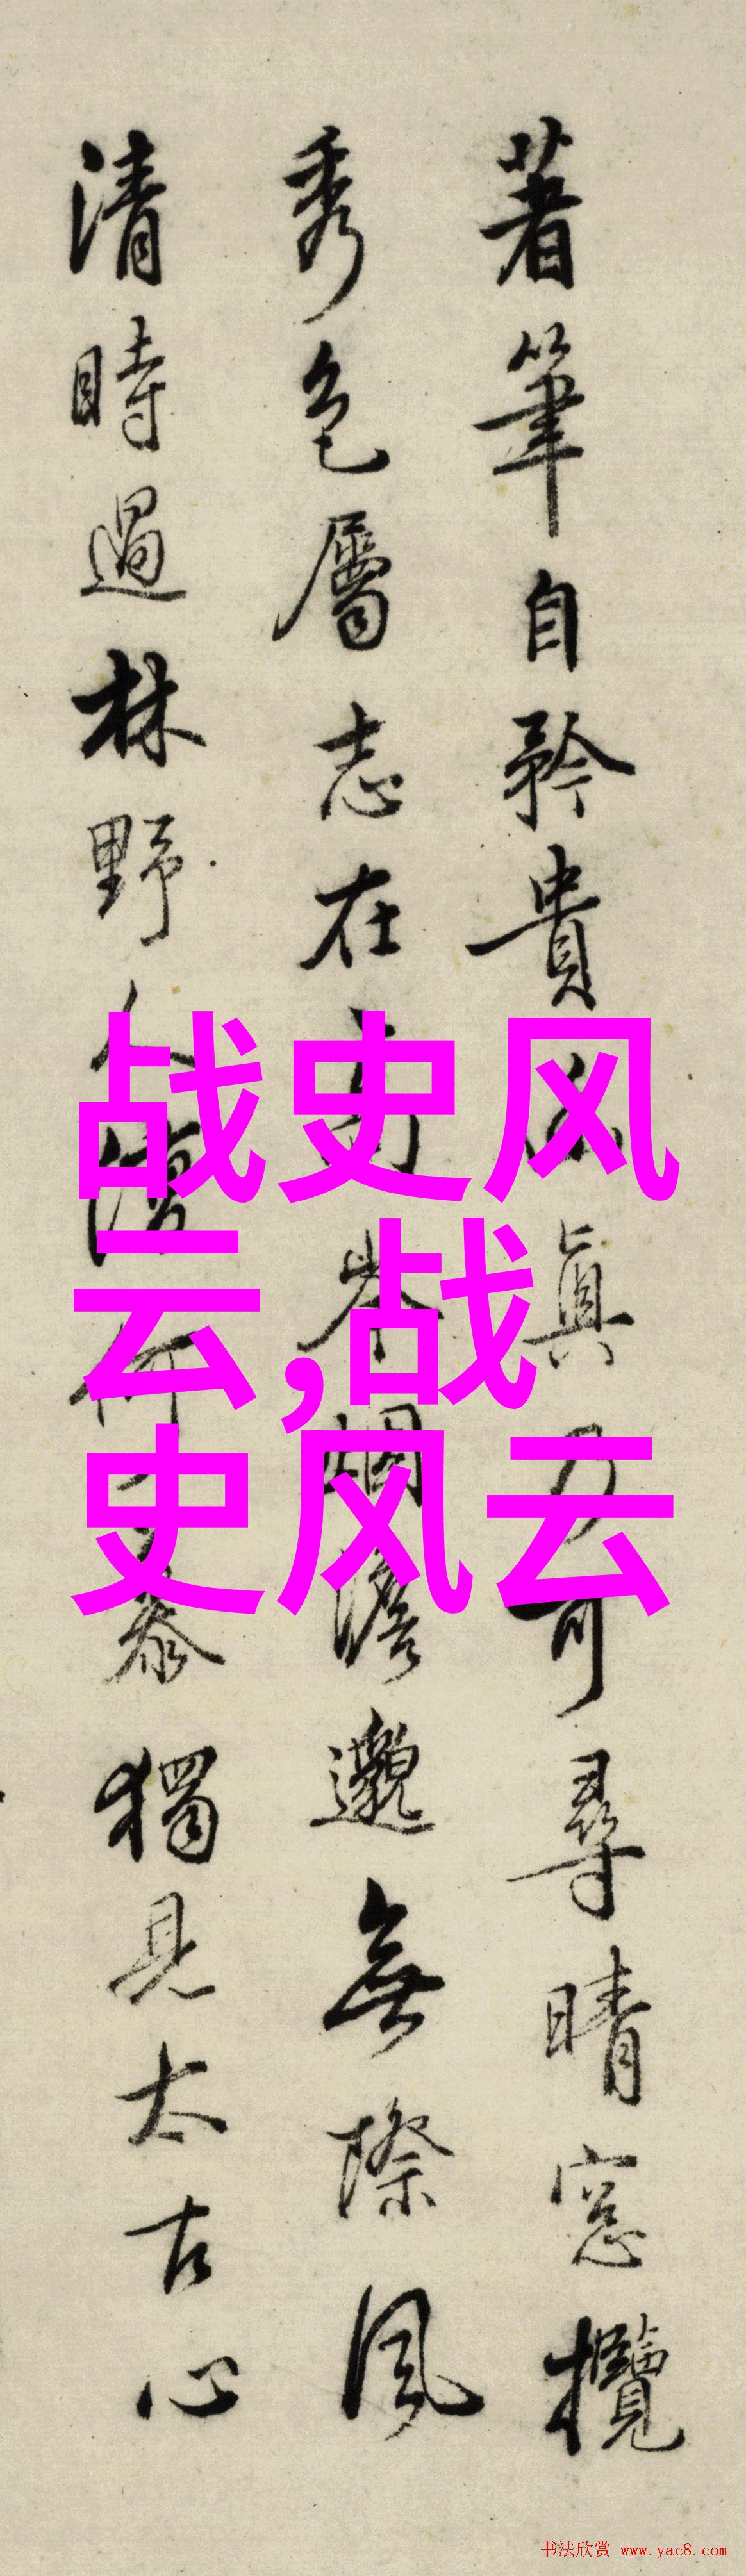 著筆自矜貴真乃可尋晴窓攬
秀色屬志在岑烟澹邈無際風
清時過林野人獨見太古心
战史风
云,战
史风云
书法欣赏 www.yac8.com